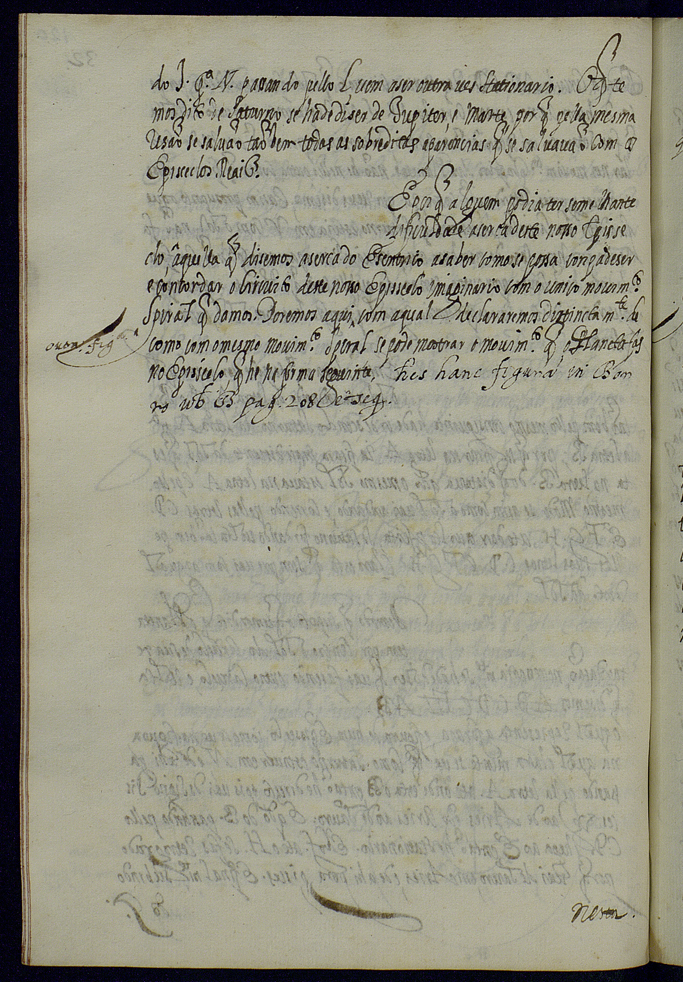 do I. p.ª N. passando pello L vem a ser outra ves Stationario. O q̃ te
mos dito de Saturno se ha de diser de Jupiter, e Marte, por q̃ pella mesma
resão se salvão tão bem todas as sobreditas aparencias q̃ se salvavão com os
Episiclos Reais.
E por q̃ alguem podia ter semelhante
dificuldade aserca deste nosso Episse
clo, âquella q̃ disemos aserca do Esentrico a saber como se possa compadeser
e concordar o Circuito deste nosso Episeclo imaginario com o unico movim.to
Spiral q̃ damos. Poremos aqui com a qual declararemos distincta m.te
como com o mesmo movim.to Spiral se pode mostrar o movim.to q̃ o Planeta fas
no Episiclo, q̃ he na forma seguinte,
hanc figuram in Bor
ro pag: 208 et seq.